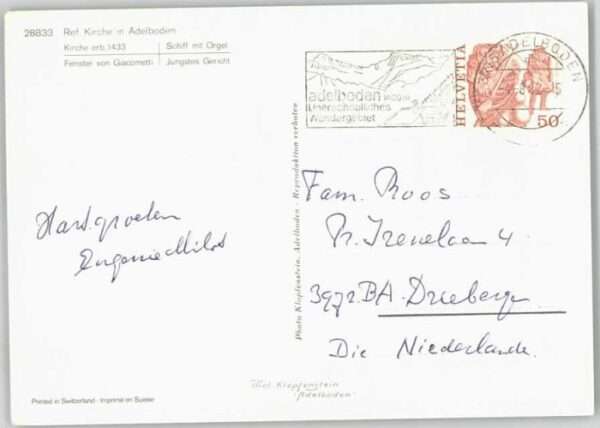 28833 Ref. Kirche in Adelboden
Kirche erb. 1433 Schiff mit Orgel
Fenster von Giacometti Jüngstes Gericht
adelboden
Unerschöpfliches
Wandergebiet
ADELBODEN
HELVETIA
50
Hart. groeten
Eugenie Milos
Fam. Roos
Pr. Irenelaan 4
3972 BA. Driebergen
Die Niederlande.
Photo Klopfenstein, Adelboden - Reproduktion verboten
Phot. Klopfenstein
"Adelboden"
Printed in Switzerland - Imprimé en Suisse